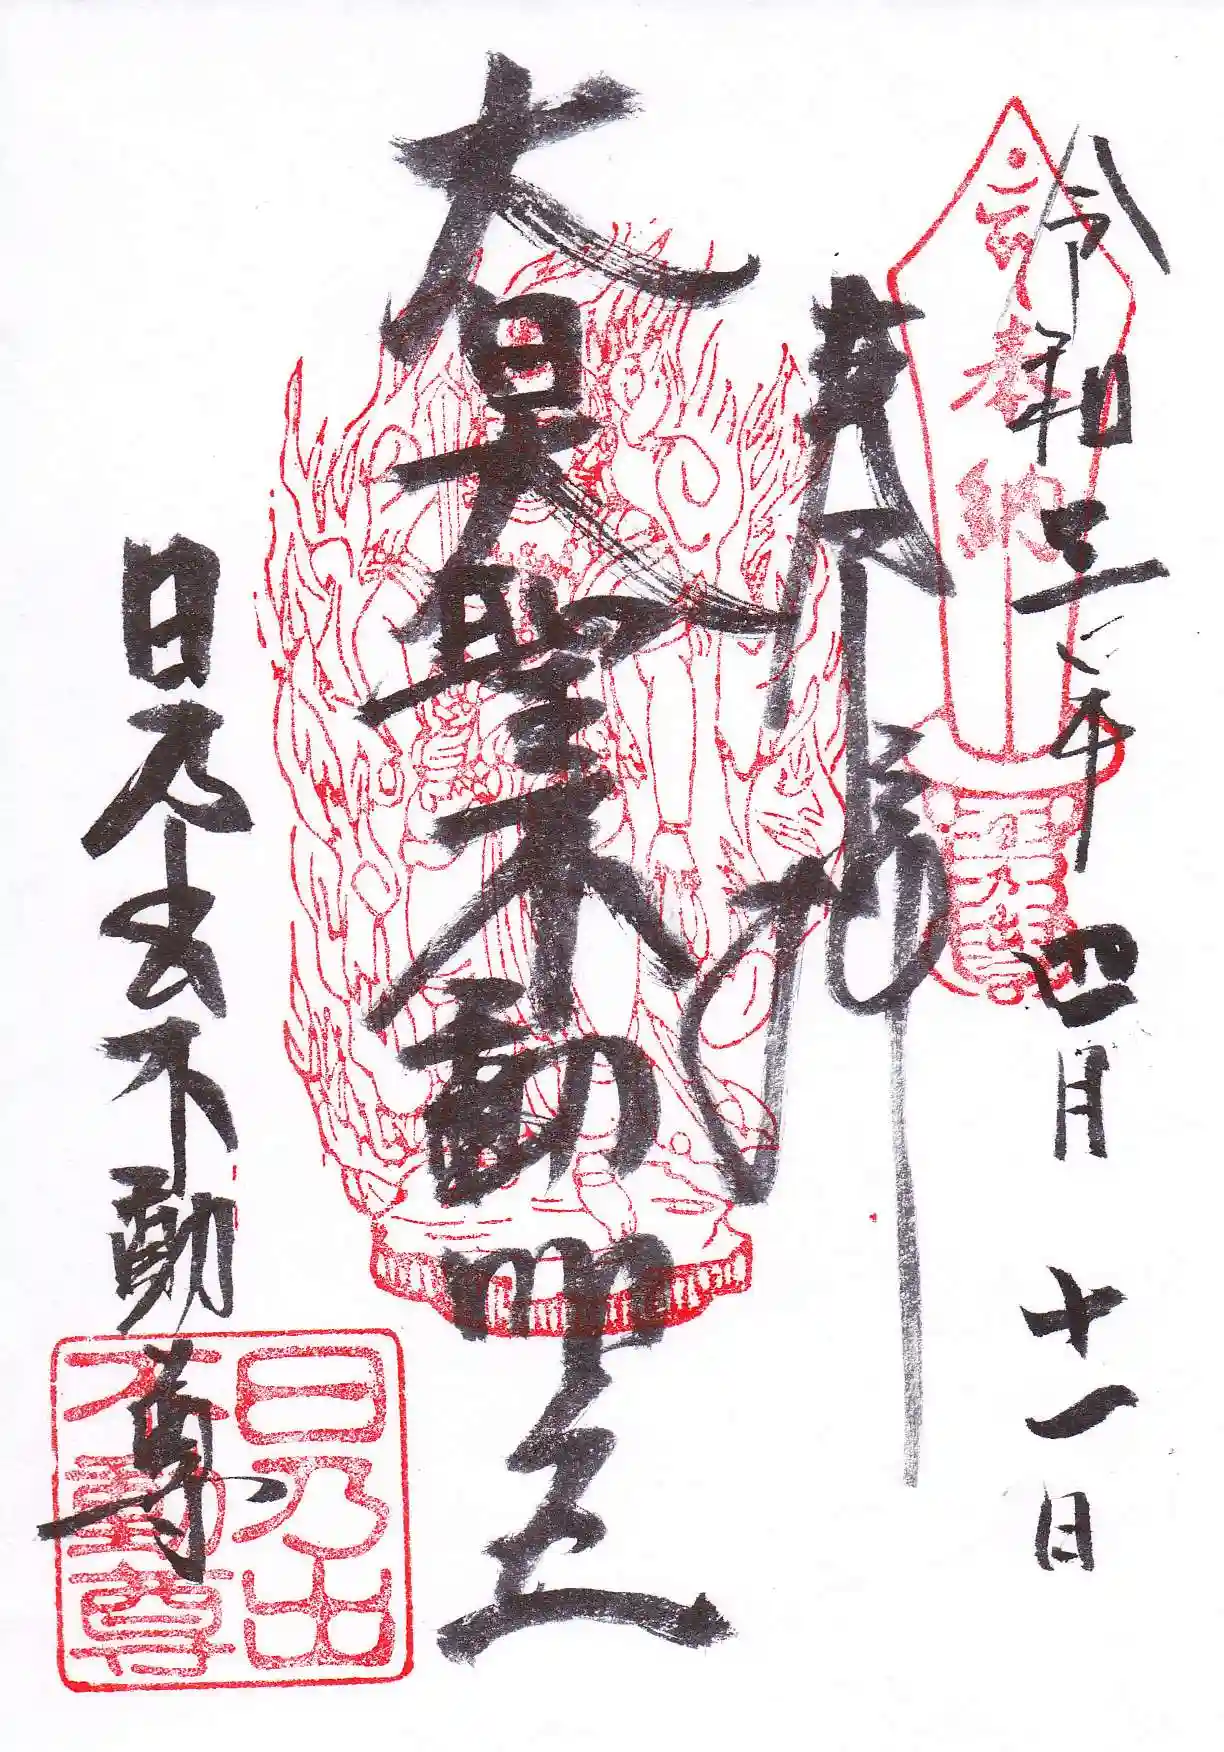 令和三年四月十一日
奉納
大日大聖不動明王
日乃出不動尊
日乃出
不動尊